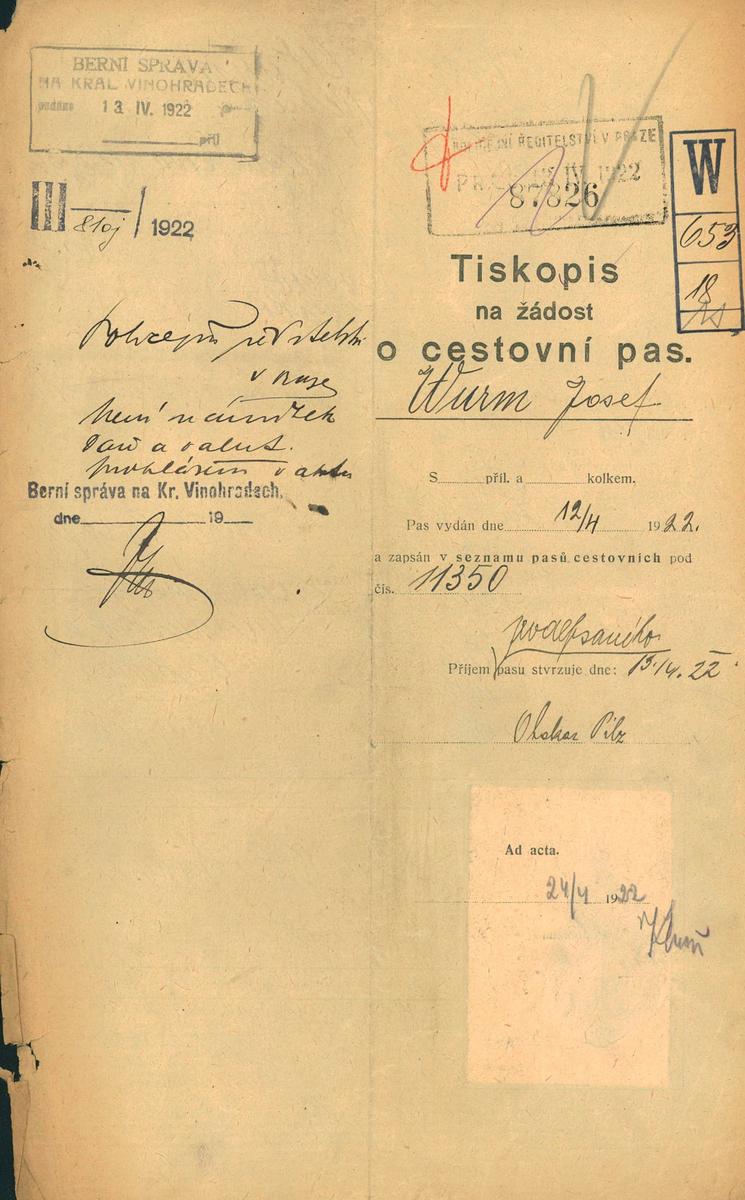 BERNÍ SPRÁVA
NA KRÁL. VINOHRADECH
podáno 13 IV. 1922
příl
III 1922
Policejní ředitelství
v Praze
Není námitek
daň a valut.
prohlášení v aktu
Berní správa na Kr. Vinohradech,
dne 19
POLICEJNÍ ŘEDITELSTVÍ V PRAZE
IV. 1922
87826
W
653
18
Tiskopis
na žádost
o cestovní pas.
Wurm Josef
S příl. a kolkem.
Pas vydán dne 12/4 1922.
a zapsán v seznamu pasů cestovních pod
čís. 11350
podepsaného
Příjem pasu stvrzuje dne: 13./4. 22
Otokar Pilz
Ad acta.
24/4 1922